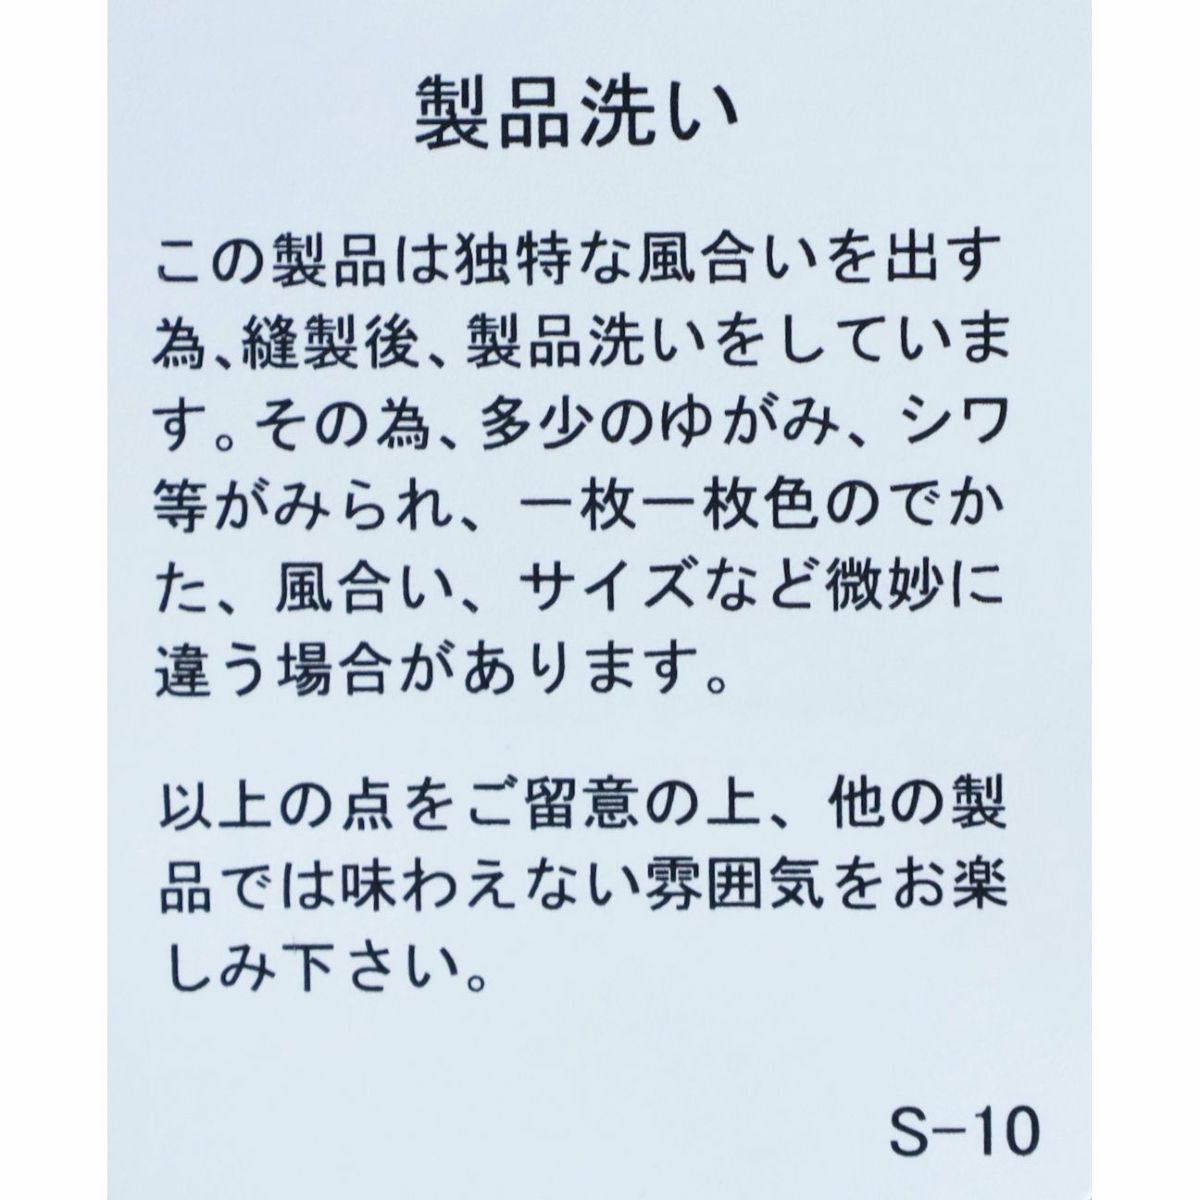 製品洗い
この製品は独特な風合いを出す
為、縫製後、製品洗いをしていま
す。その為、多少のゆがみ、シワ
等がみられ、一枚一枚色のでか
た、風合い、サイズなど微妙に
違う場合があります。
以上の点をご留意の上、他の製
品では味わえない雰囲気をお楽
しみ下さい。
S-10